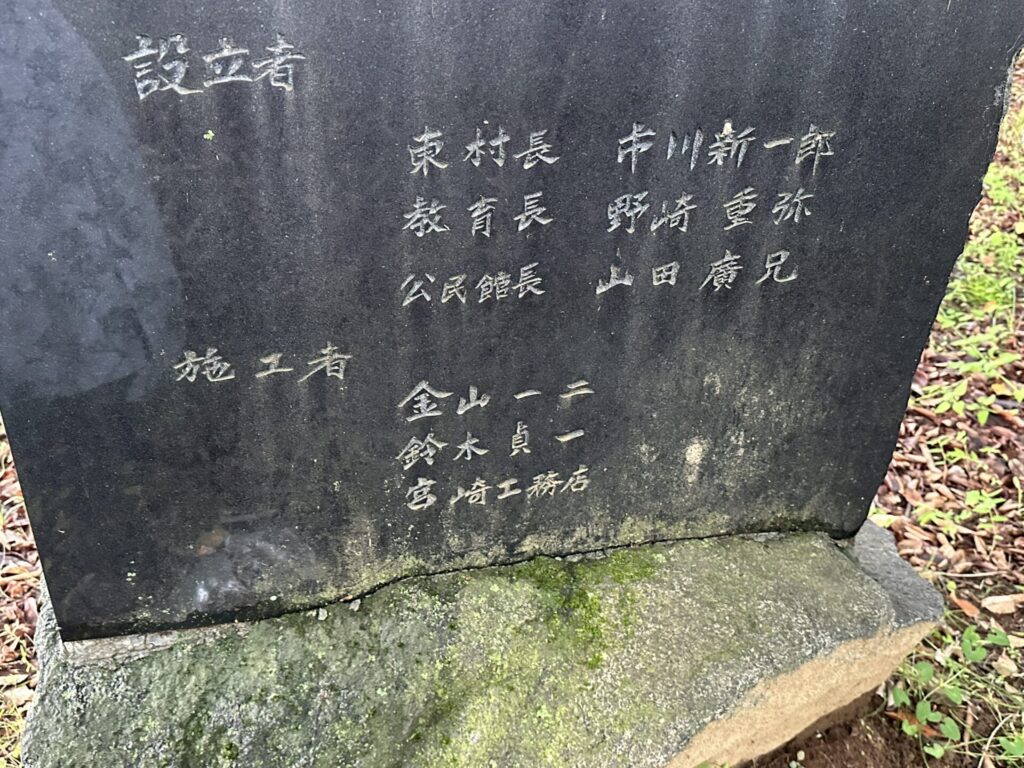 設立者
東村長 市川新一郎
教育長 野崎重弥
公民館長 山田廣兄
施工者
金山一二
鈴木貞一
宮崎工務店